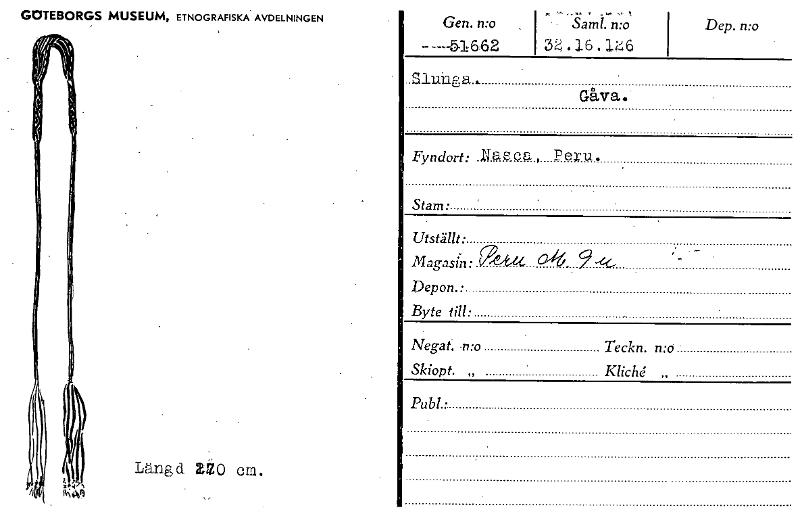 GÖTEBORGS MUSEUM, ETNOGRAFISKA AVDELNINGEN
Gen. n:o
51662
Saml. n:o
32.16.126
Dep. n:o
Slunga.
Gåva.
Fyndort: Nasca, Peru.
Stam:
Utställt:
Magasin: Peru M. 9 u
Depon.:
Byte till:
Negat. n:o Teckn. n:o
Skiopt. „ Kliché „
Publ.:
Längd cm.